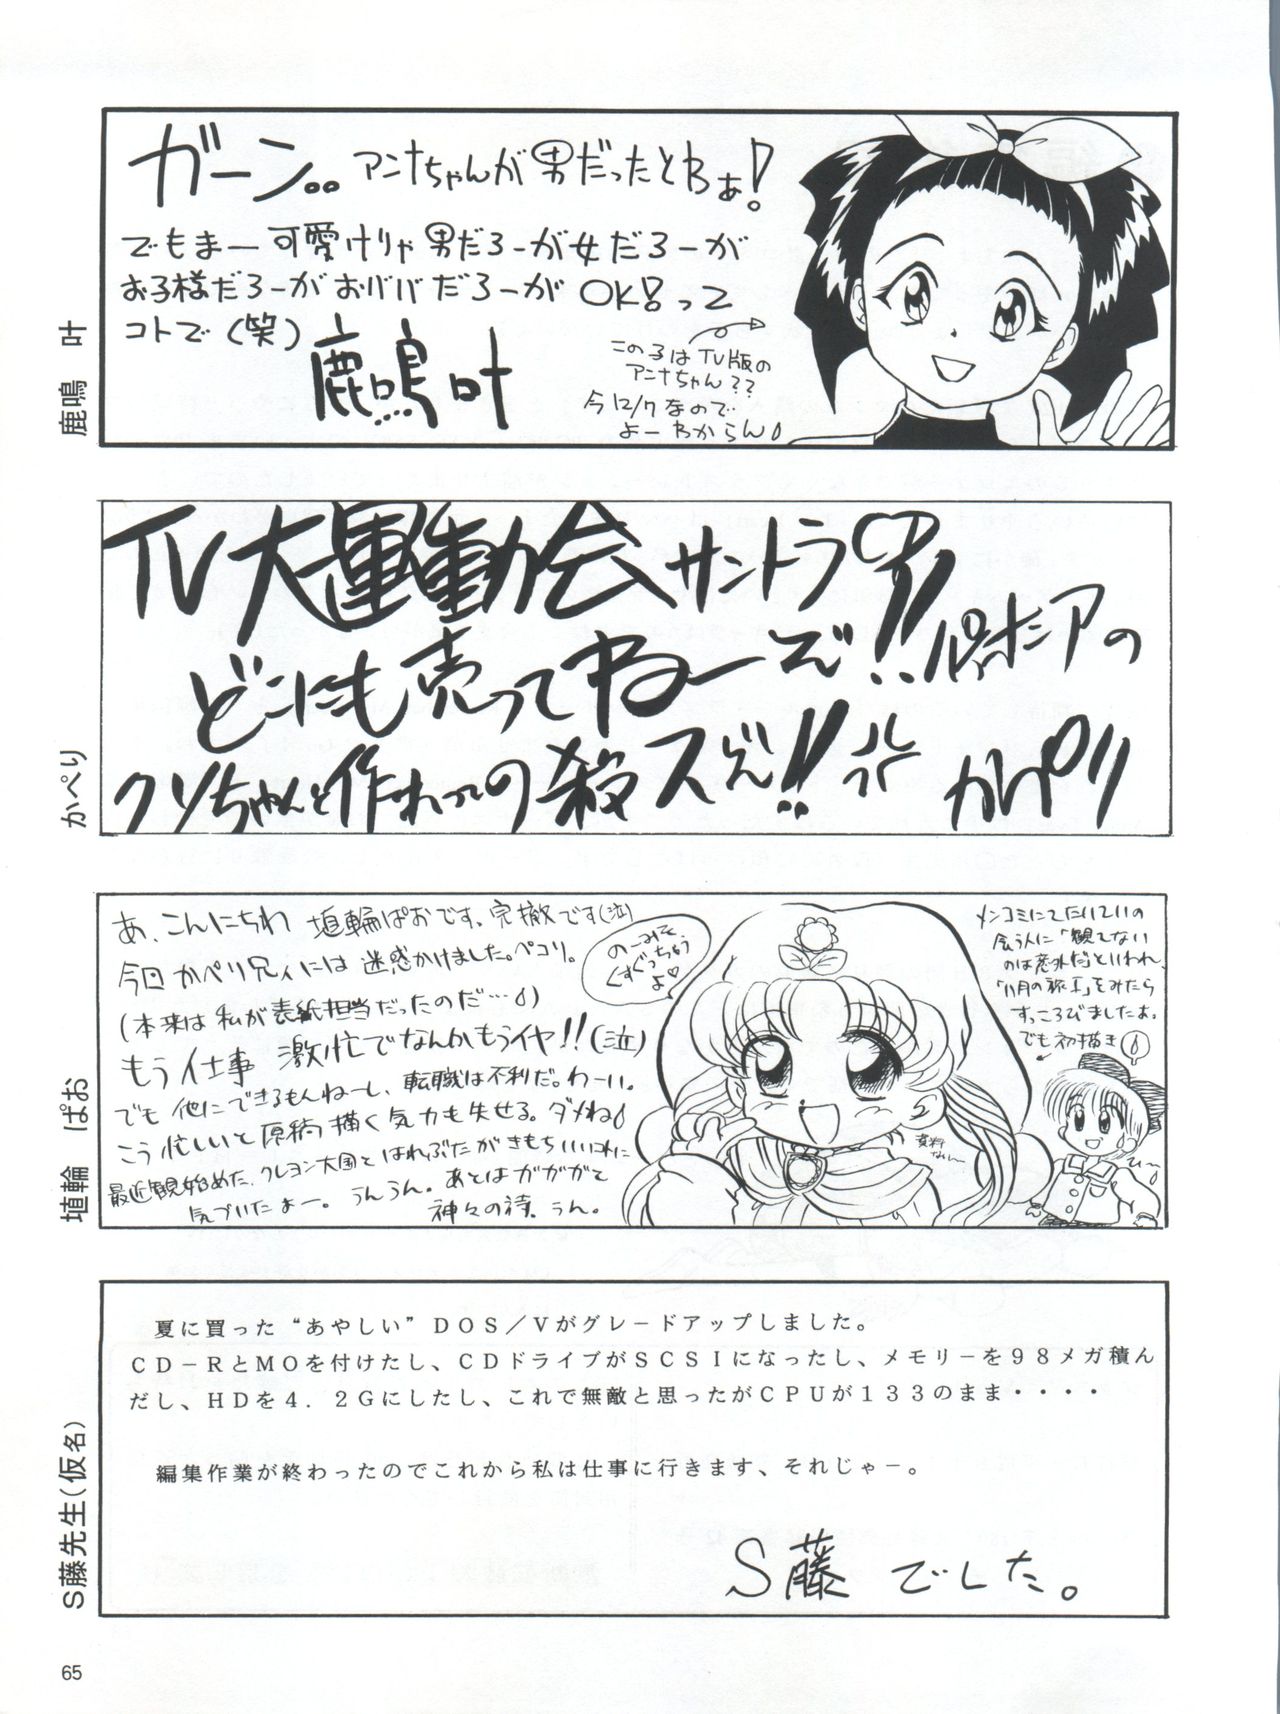 鹿鳴 叶
ガーン‥アンナちゃんが男だったとわぁ!
でもまー可愛けりゃ男だろーが女だろーが
お子様だろーがおババだろーがOK!って
コトで(笑)
鹿鳴叶
この子はTV版の
アンナちゃん??
今12/7なので
よーわからん
かぺり
TV大運動会サントラ
どこにも売ってねーぞ!!パイオニアの
クソちゃんと作れっての殺スぞ!!
かぺり
埴輪 ぱお
あ、こんにちわ 埴輪ぱおです、完徹です(泣)
今回かぺり兄ィには迷惑かけました。ペコリ。
(本来は私が表紙担当だったのだ…)
もう仕事激忙でなんかもうイヤ!!(泣)
でも他にできるもんねーし、転職は不利だ。わーい。
こう忙しいと原稿描く気力も失せる。ダメね
最近観始めた、クレヨン大国とはれぶたがきもちいいコトに
気づいたよー。うんうん。あとはガガガと
神々の詩。うん。
のーみそ
くすぐっちゃう
よ♡
資料
なれぃー
メンコミにてたいていの
会う人に「観てない
のは意外だ」といわれ、
「11月の旅王」をみたら
すっころびましたよ。
でも初描き
S藤先生(仮名)
夏に買った“あやしい”DOS/Vがグレードアップしました。
CD-RとMOを付けたし、CDドライブがSCSIになったし、メモリーを98メガ積ん
だし、HDを4.2Gにしたし、これで無敵と思ったがCPUが133のまま・・・・
編集作業が終わったのでこれから私は仕事に行きます、それじゃー。
S藤 でした。
65